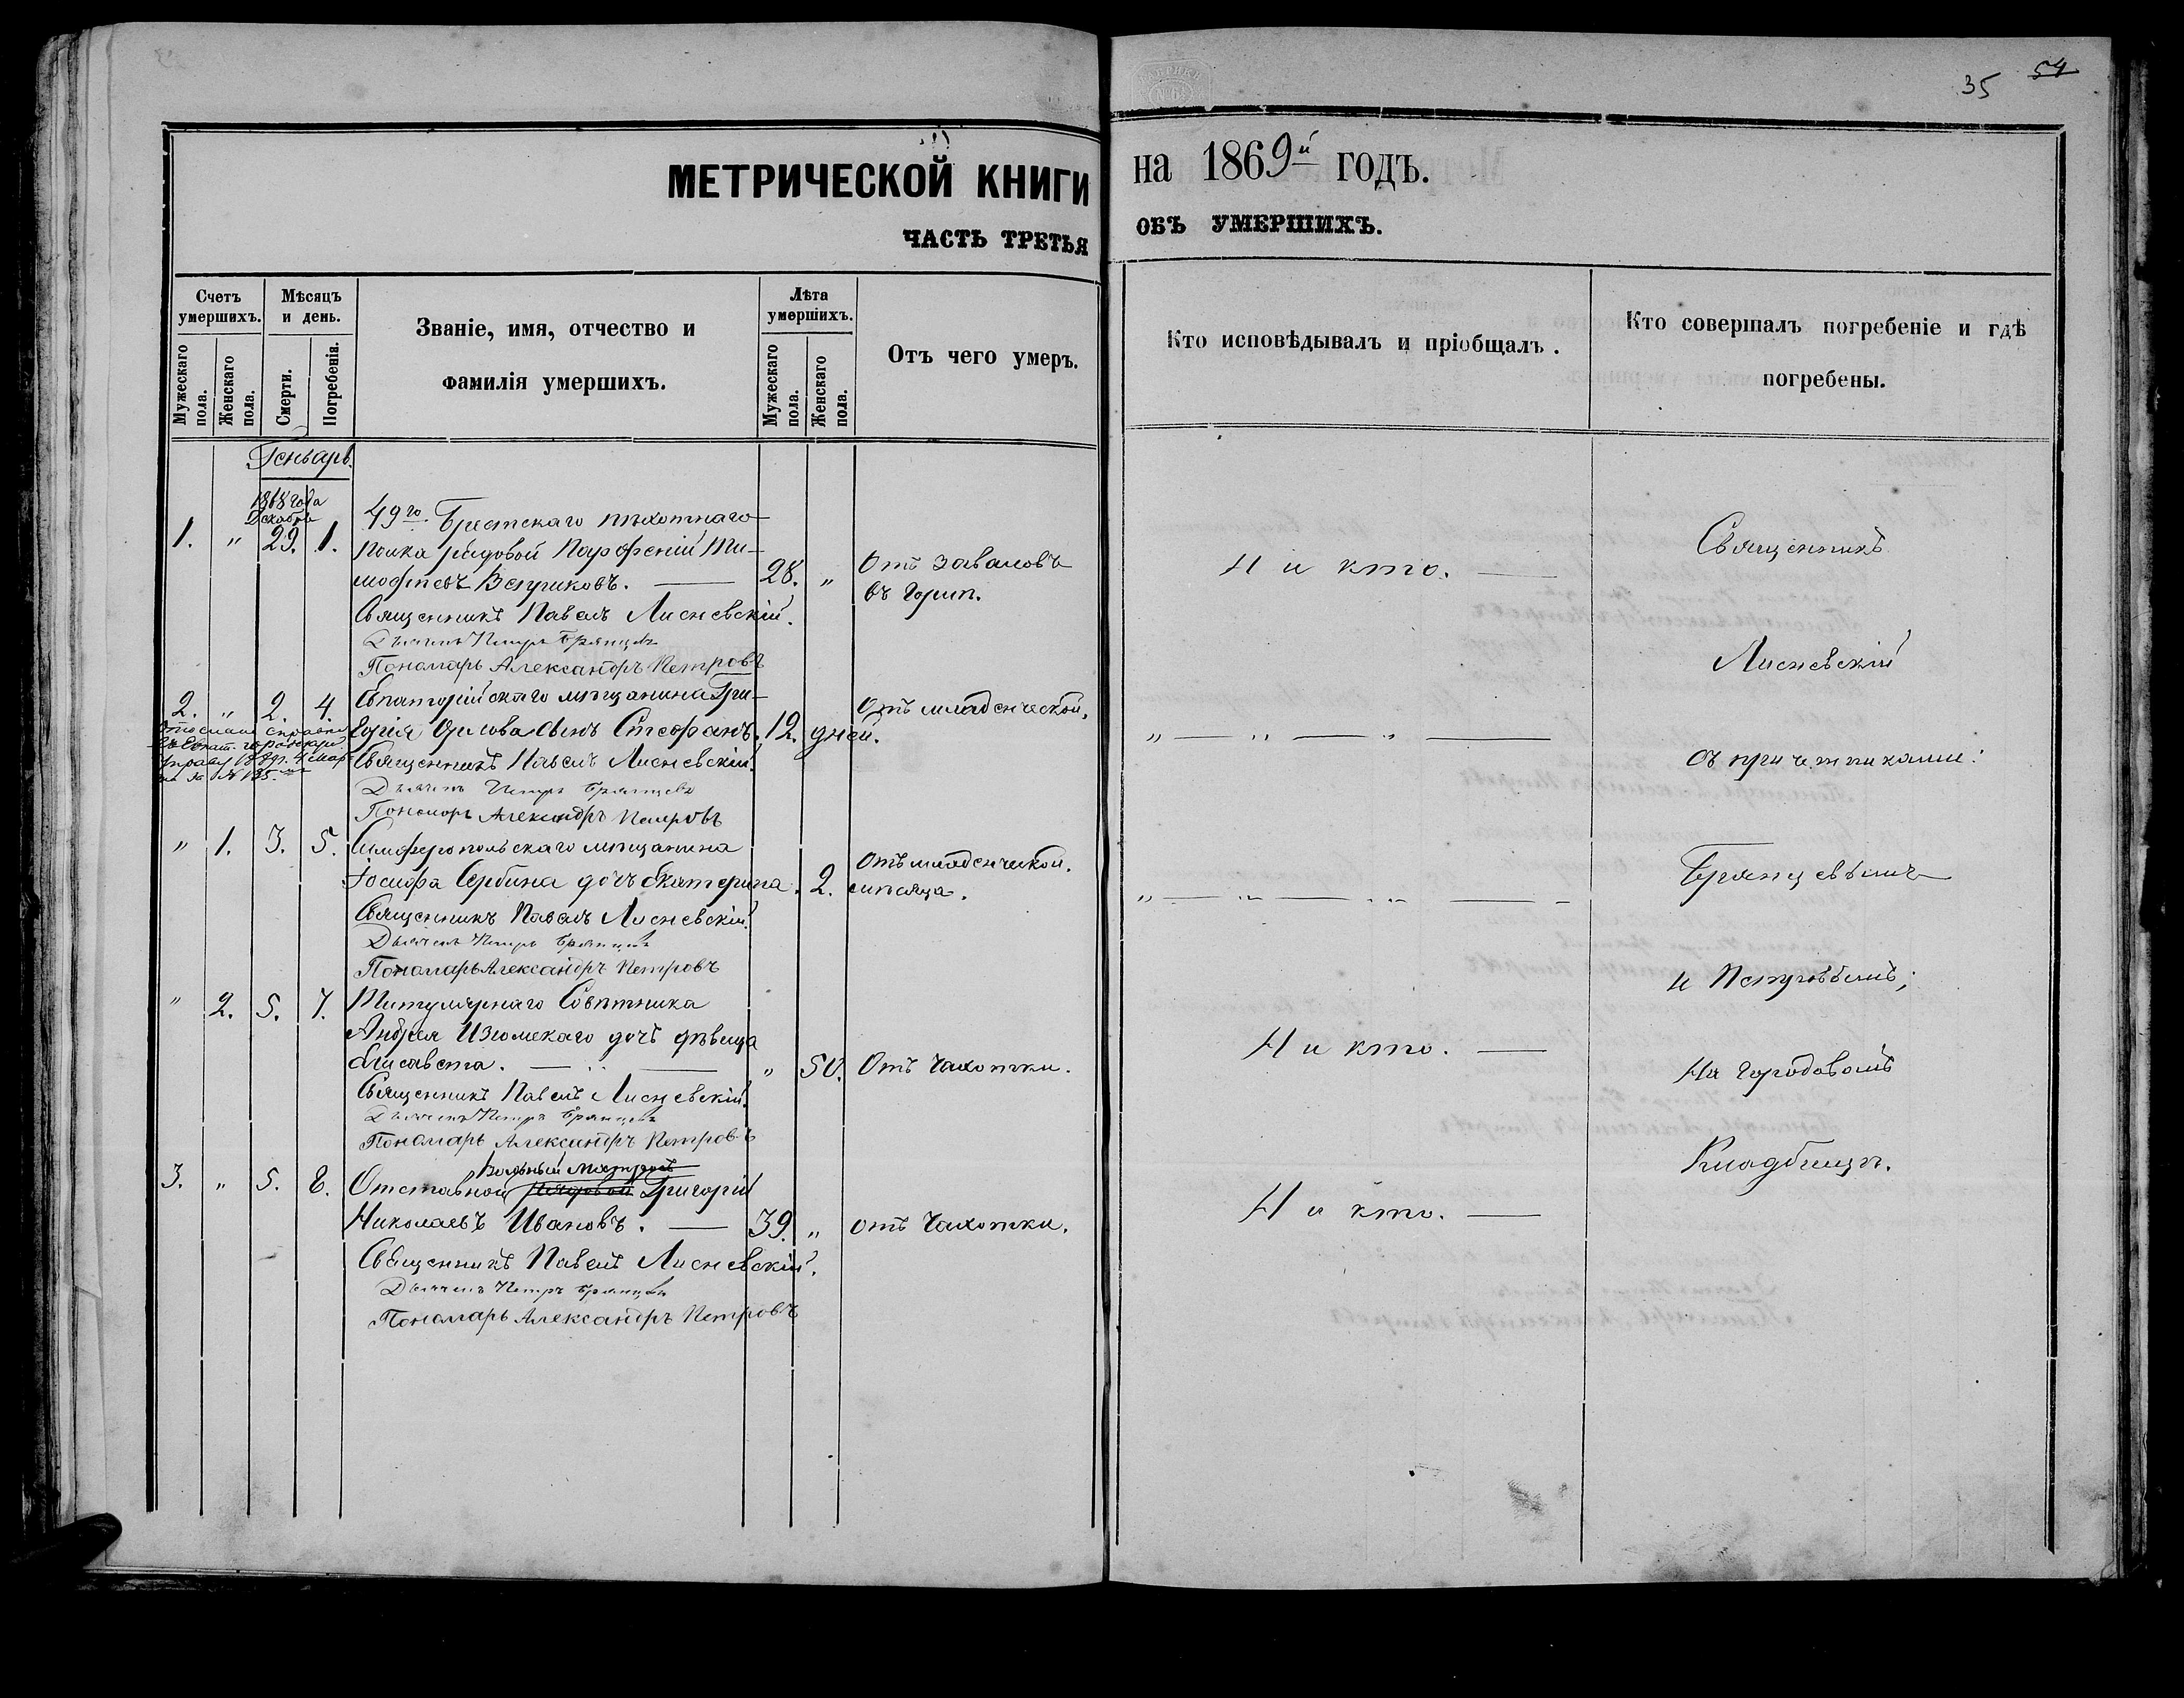 35 54
МЕТРИЧЕСКОЙ КНИГИ на 1869й годъ.
ЧАСТЬ ТРЕТЬЯ ОБЪ УМЕРШИХЪ.
Счетъ умершихъ.
Мужескаго пола.
Женскаго пола.
Мѣсяцъ и день.
Смерти.
Погребенія.
Званіе, имя, отчество и
фамилія умершихъ.
Лѣта умершихъ.
Мужескаго пола.
Женскаго пола.
Отъ чего умеръ.
Кто исповѣдывалъ и пріобщалъ.
Кто совершалъ погребеніе и гдѣ
погребены.
Генварь.
1868 года
Декабрь
1. " 29. 1.
49го Брестскаго пѣхотнаго
полка рядовой Парфеній Ти-
мофѣевъ
28. "
Отъ заваловъ
въ горлѣ.
Никто.
Священникъ Павелъ Лисневскій.
Дьячекъ Петръ Брянцевъ
Пономарь Александръ Петровъ
2. " 2. 4.
Евпаторійскаго мѣщанина Гри-
горія Орлова сынъ Стефанъ.
12. дней.
Отъ младенческой.
" — " — " —
справка
въ Евпат. городскую
управу 4 мар.
за № 135.
Священникъ Павелъ Лисневскій.
Дьячекъ Петръ Брянцевъ
Пономарь Александръ Петровъ
" 1. 3. 5.
Симферопольскаго мѣщанина
Іосифа Сербина дочь Екатерина.
2. мѣсяца.
Отъ младенческой.
" — " — " —
Священникъ Павелъ Лисневскій.
Дьячекъ Петръ Брянцевъ
Пономарь Александръ Петровъ
" 2. 5. 7.
Титулярнаго Совѣтника
Андрея Изюмскаго дочь дѣвица
Елисавета.
" 50.
Отъ чахотки.
Никто.
Священникъ Павелъ Лисневскій.
Дьячекъ Петръ Брянцевъ
Пономарь Александръ Петровъ
3. " 5. 8.
матросъ
Отставной рядовой Григорій
Николаевъ Ивановъ.
39. "
отъ чахотки.
Никто.
Священникъ Павелъ Лисневскій.
Дьячекъ Петръ Брянцевъ
Пономарь Александръ Петровъ
Священникъ
Лисневскій
съ причетниками:
Брянцевымъ
и Петровымъ;
На городовомъ
Кладбищѣ.